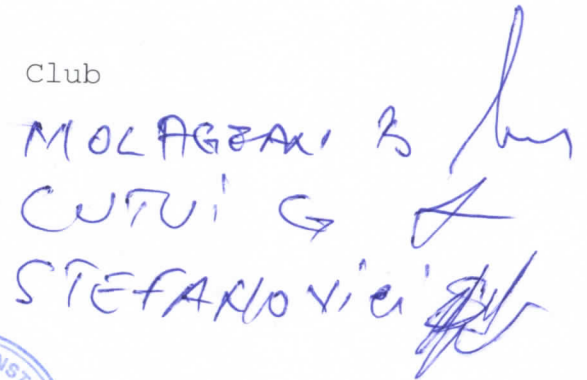 Club
MOLAGEANI B
CUTUI G
STEFANOVICI